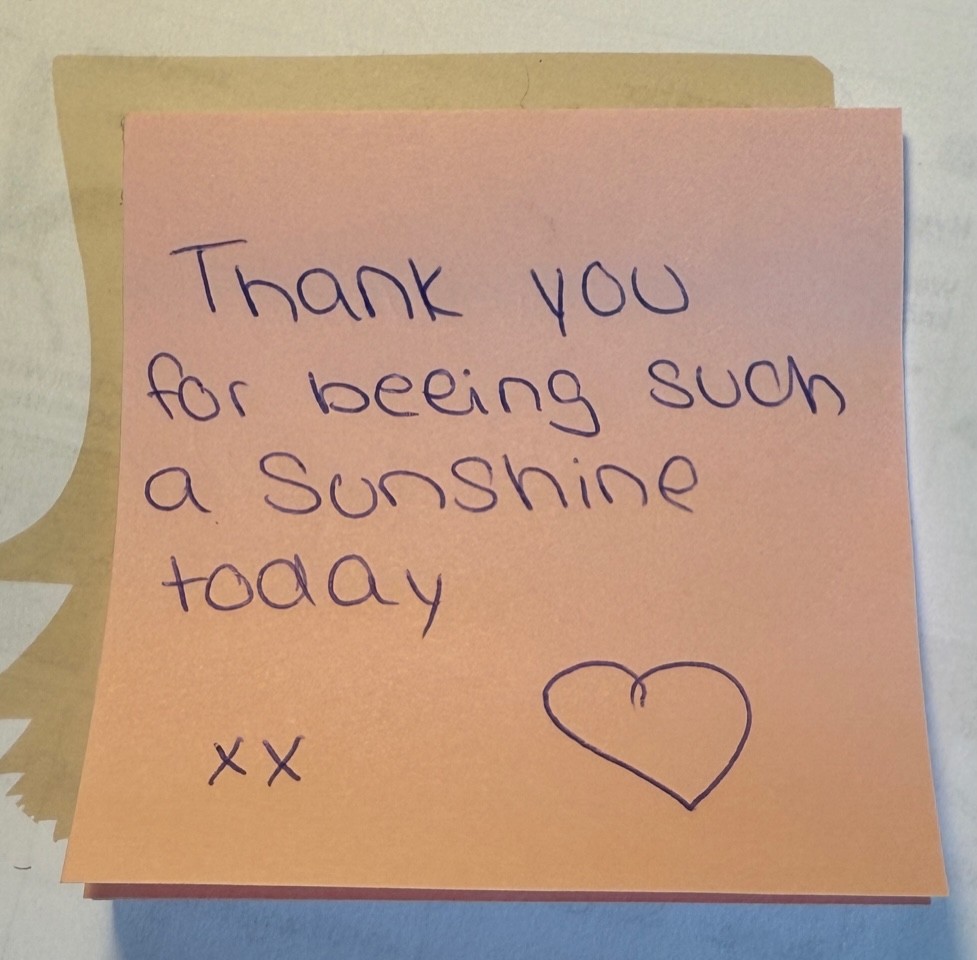 Thank you
for beeing such
a Sunshine
today
xx